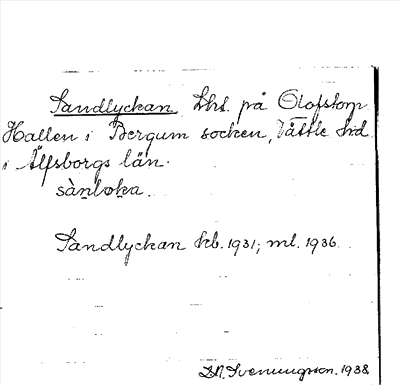 Sandlyckan. Lht. på Olofstorp
Hallen i Bergum socken, Vättle hd
i Älfsborgs län.
sànloka.
Sandlyckan kb. 1931; ml. 1936.
Svenungsson. 1938.